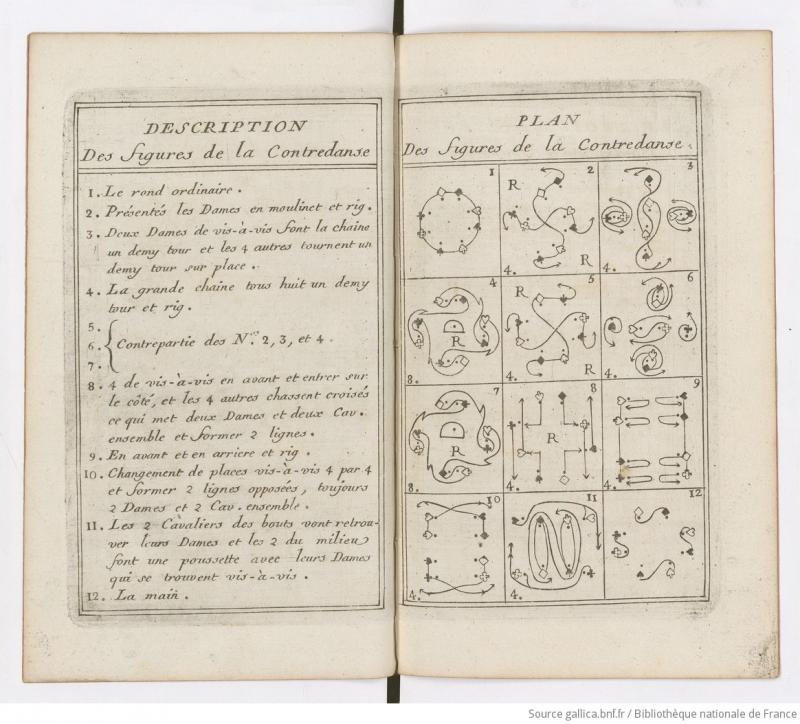 DESCRIPTION
Des figures de la Contredanse
1. Le rond ordinaire.
2. Présentés les Dames en moulinet et rig.
3. Deux Dames de vis-à-vis font la chaine
un demy tour et les 4 autres tournent un
demy tour sur place.
4. La grande chaine tous huit un demy
tour et rig.
5.
6. Contrepartie des Nos. 2, 3, et 4.
7.
8. 4 de vis-à-vis en avant et entrer sur
le côté, et les 4 autres chassent croisés
ce qui met deux Dames et deux Cav.
ensemble et former 2 lignes.
9. En avant et en arriere et rig.
10. Changement de places vis-à-vis 4 par 4
et former 2 lignes opposées, toujours
2 Dames et 2 Cav. ensemble.
11. Les 2 Cavaliers des bouts vont retrou-
ver leurs Dames et les 2 du milieu
font une poussette avec leurs Dames
qui se trouvent vis-à-vis.
12. La main.
PLAN
Des figures de la Contredanse.
1
R 2
R
4.
3
4.
4
D
R
8.
R 5
R
4.
6
4.
7
D
R
8.
8
R
4.
9
4.
10
4.
11
4.
12
Source gallica.bnf.fr / Bibliothèque nationale de France